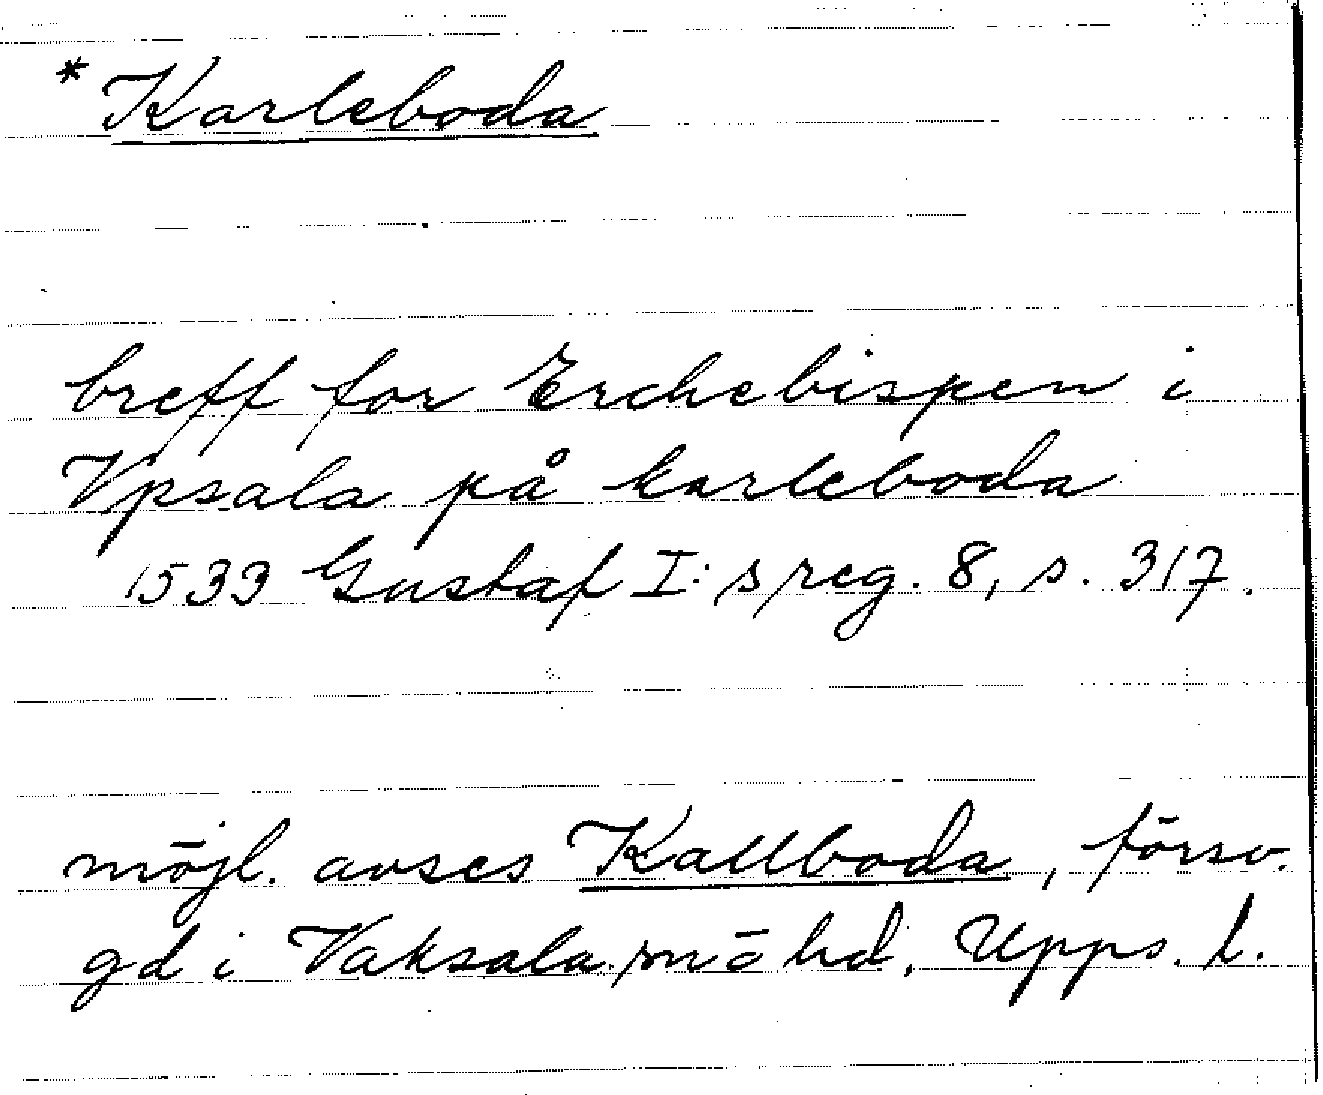 * Karleboda
breff for Erchebispen i
Vpsala på karleboda
1533 Gustaf I:s reg. 8, s. 317.
möjl. avses Kallboda, försv.
gd i Vaksala sn o hd, Upps. l.